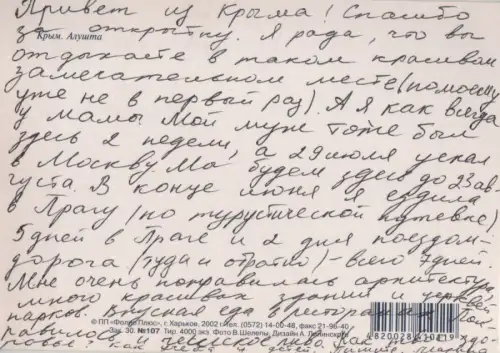 Привет из Крыма! Спасибо
за открытку. Я рада, что вы
Крым. Алушта
отдыхаете в таком красивом
замечательном месте (по-моему
уже не в первый раз). А я как всегда
у мамы. Мой муж тоже был
здесь 2 недели, а 29 июля уехал
в Москву. Мы будем здесь до 23 ав
густа. В конце июня я ездила
в Прагу (по туристической путевке)
5 дней в Праге и 2 дня поездом-
дорога (туда и обратно) - всего 7 дней.
Мне очень понравилась архитектура,
много красивых зданий и церквей,
парков. Вкусная еда в ресторанах. Пон
© ПП «Фолио Плюс», г. Харьков, 2002 г. тел. (0572) 14-00-48, факс 21-96-40
Зак. 30. №107 Тир. 4000 экз. Фото В. Шелепы, Дизайн А.
равилось и чешское пиво. Как
ровье?